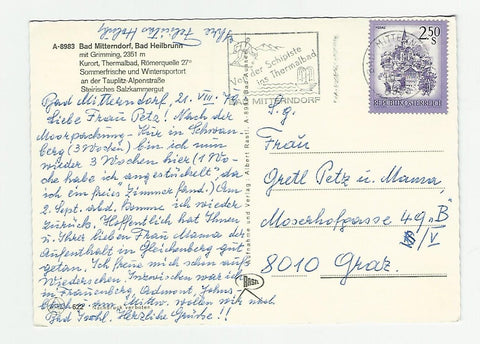 A-8983 Bad Mitterndorf, Bad Heilbrunn
mit Grimming, 2351 m
Kurort, Thermalbad, Römerquelle 27°
Sommerfrische und Wintersportort
an der Tauplitz-Alpenstraße
Steirisches Salzkammergut
Bad Mitterndorf, 21. VIII.
Liebe Frau Petz! Nach der
Moorpackung-Kur in Schwan-
berg (3 Wochen) bin ich nun
wieder 3 Wochen hier (1 Wo-
che habe ich "angestückelt", da
ich ein freies Zimmer fand.) Am
2. Sept. abd. komme ich wieder
zurück. Hoffentlich hat Ihnen
u. Ihrer lieben Frau Mama der
Aufenthalt in Gleichenberg gut
getan. Ich freue mich schon aufs
Wiedersehen. Inzwischen war ich
in Frauenberg, Admont, Johns-
Mittw. wollen wir nach
Bad Ischl. Herzliche Grüße!!
Ihre
622
verboten
Aufnahme und Verlag: Albert Rastl, A-8990 Bad Aussee
RASTL
der Schiptste
ins Thermalbad
MITTERNDORF
2.50
S
REPUBLIK ÖSTERREICH
S. g.
Frau
Gretl Petz u. Mama,
Moserhofgasse 49 "B"
/V
8010 Graz.